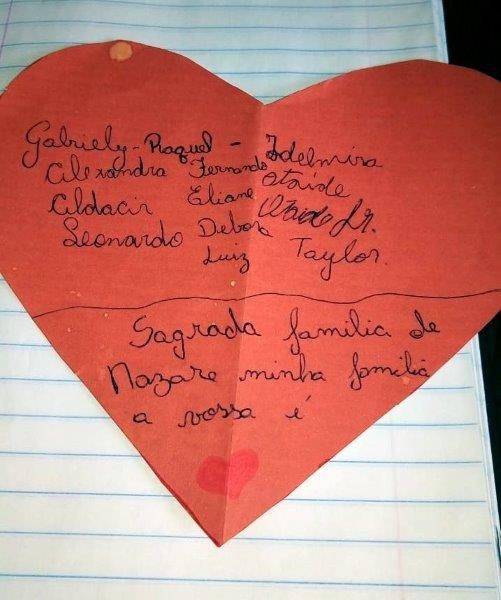 Gabriely - Raquel - Idelmira
Alexandra Fernando Ataíde
Aldacir Eliane Ataide Jr.
Leonardo Debora
Luiz Taylor.
Sagrada familia de
Nazare minha familia
a vossa é